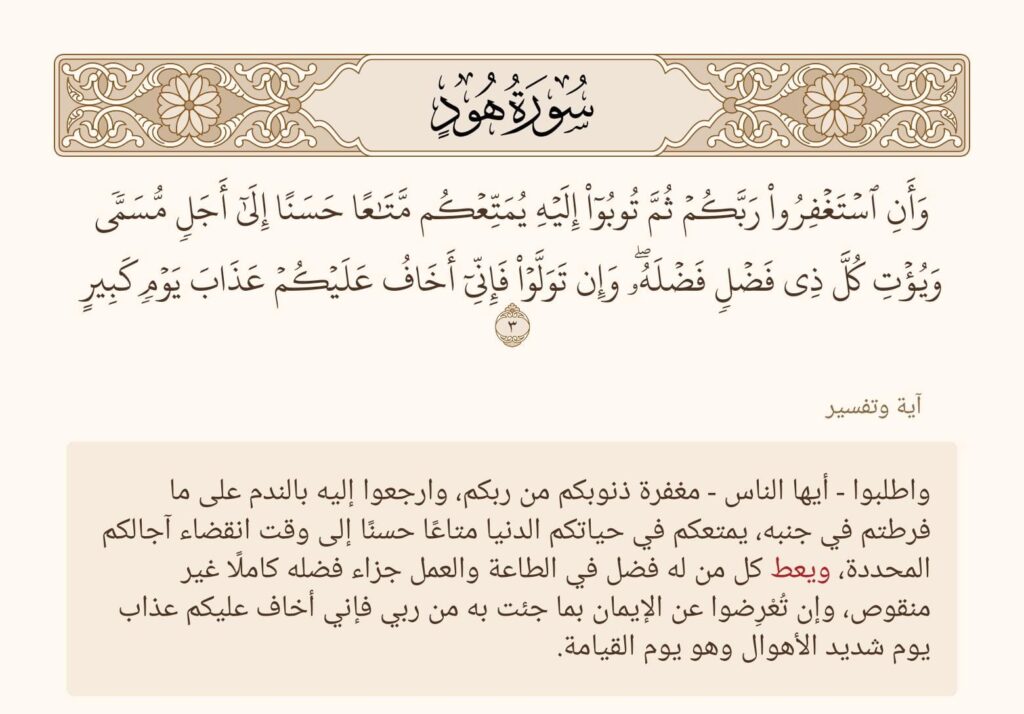 سُورَةُ هُودٍ
وَأَنِ ٱسۡتَغۡفِرُواْ رَبَّكُمۡ ثُمَّ تُوبُوٓاْ إِلَيۡهِ يُمَتِّعۡكُم مَّتَٰعًا حَسَنًا إِلَىٰٓ أَجَلٖ مُّسَمّٗى
وَيُؤۡتِ كُلَّ ذِي فَضۡلٖ فَضۡلَهُۥۖ وَإِن تَوَلَّوۡاْ فَإِنِّيٓ أَخَافُ عَلَيۡكُمۡ عَذَابَ يَوۡمٖ كَبِيرٍ
٣
آية وتفسير
واطلبوا - أيها الناس - مغفرة ذنوبكم من ربكم، وارجعوا إليه بالندم على ما
فرطتم في جنبه، يمتعكم في حياتكم الدنيا متاعًا حسنًا إلى وقت انقضاء آجالكم
المحددة، ويعط كل من له فضل في الطاعة والعمل جزاء فضله كاملًا غير
منقوص، وإن تُعْرِضوا عن الإيمان بما جئت به من ربي فإني أخاف عليكم عذاب
يوم شديد الأهوال وهو يوم القيامة.